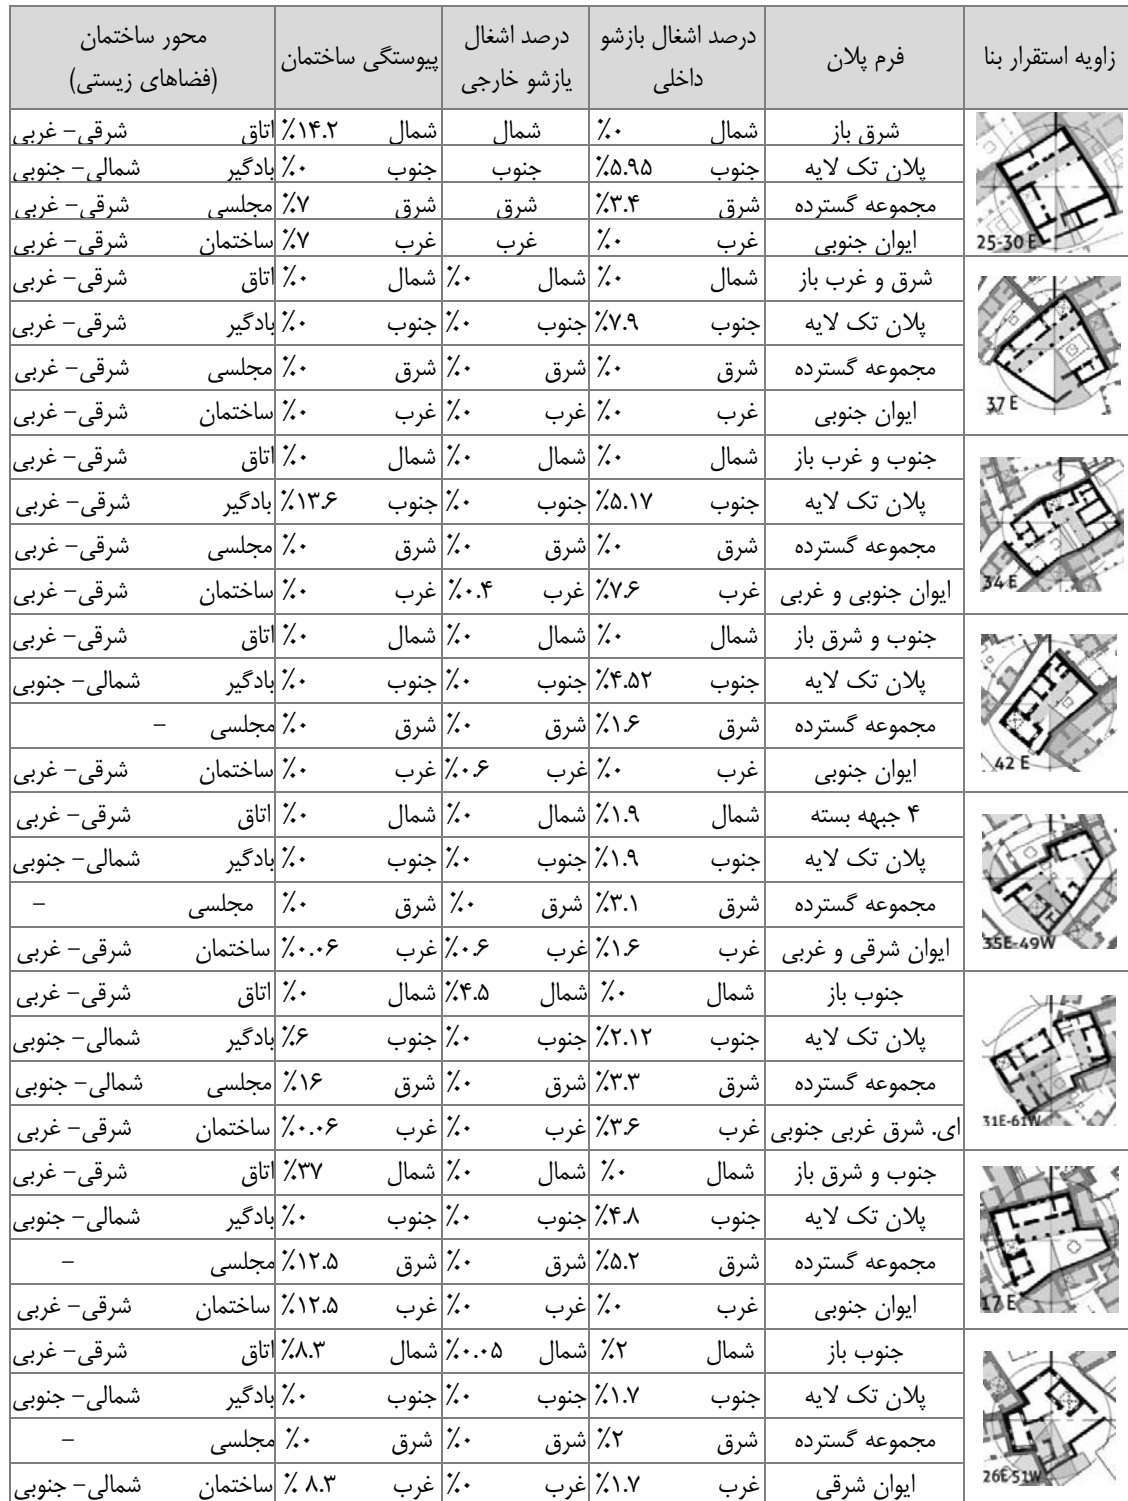 زاویه استقرار بنا فرم پلان درصد اشغال بازشو داخلی درصد اشغال یازشو خارجی پیوستگی ساختمان محور ساختمان (فضاهای زیستی)
شرق باز شمال ۰٪ شمال شمال ۱۴.۲٪ اتاق شرقی– غربی
پلان تک لایه جنوب ۵.۹۵٪ جنوب جنوب ۰٪ بادگیر شمالی– جنوبی
مجموعه گسترده شرق ۳.۴٪ شرق شرق ۷٪ مجلسی شرقی– غربی
25-30 E ایوان جنوبی غرب ۰٪ غرب غرب ۷٪ ساختمان شرقی– غربی
شرق و غرب باز شمال ۰٪ شمال ۰٪ شمال ۰٪ اتاق شرقی– غربی
پلان تک لایه جنوب ۷.۹٪ جنوب ۰٪ جنوب ۰٪ بادگیر شرقی– غربی
مجموعه گسترده شرق ۰٪ شرق ۰٪ شرق ۰٪ مجلسی شرقی– غربی
37 E ایوان جنوبی غرب ۰٪ غرب ۰٪ غرب ۰٪ ساختمان شرقی– غربی
جنوب و غرب باز شمال ۰٪ شمال ۰٪ شمال ۰٪ اتاق شرقی– غربی
پلان تک لایه جنوب ۵.۱۷٪ جنوب ۰٪ جنوب ۱۳.۶٪ بادگیر شرقی– غربی
مجموعه گسترده شرق ۰٪ شرق ۰٪ شرق ۰٪ مجلسی شرقی– غربی
34 E ایوان جنوبی و غربی غرب ۷.۶٪ غرب ۰.۴٪ غرب ۰٪ ساختمان شرقی– غربی
جنوب و شرق باز شمال ۰٪ شمال ۰٪ شمال ۰٪ اتاق شرقی– غربی
پلان تک لایه جنوب ۴.۵۲٪ جنوب ۰٪ جنوب ۰٪ بادگیر شمالی– جنوبی
مجموعه گسترده شرق ۱.۶٪ شرق ۰٪ شرق ۰٪ مجلسی –
42 E ایوان جنوبی غرب ۰٪ غرب ۰.۶٪ غرب ۰٪ ساختمان شرقی– غربی
۴ جبهه بسته شمال ۱.۹٪ شمال ۰٪ شمال ۰٪ اتاق شرقی– غربی
پلان تک لایه جنوب ۱.۹٪ جنوب ۰٪ جنوب ۰٪ بادگیر شمالی– جنوبی
مجموعه گسترده شرق ۳.۱٪ شرق ۰٪ شرق ۰٪ مجلسی –
35E-49W ایوان شرقی و غربی غرب ۱.۶٪ غرب ۰.۶٪ غرب ۰.۰۶٪ ساختمان شرقی– غربی
جنوب باز شمال ۰٪ شمال ۴.۵٪ شمال ۰٪ اتاق شرقی– غربی
پلان تک لایه جنوب ۲.۱۲٪ جنوب ۰٪ جنوب ۶٪ بادگیر شمالی– جنوبی
مجموعه گسترده شرق ۳.۳٪ شرق ۰٪ شرق ۱۶٪ مجلسی شمالی– جنوبی
31E-61W ای. شرق غربی جنوبی غرب ۳.۶٪ غرب ۰٪ غرب ۰.۰۶٪ ساختمان شرقی– غربی
جنوب و شرق باز شمال ۰٪ شمال ۰٪ شمال ۳۷٪ اتاق شرقی– غربی
پلان تک لایه جنوب ۴.۸٪ جنوب ۰٪ جنوب ۰٪ بادگیر شمالی– جنوبی
مجموعه گسترده شرق ۵.۲٪ شرق ۰٪ شرق ۱۲.۵٪ مجلسی –
17 E ایوان جنوبی غرب ۰٪ غرب ۰٪ غرب ۱۲.۵٪ ساختمان شرقی– غربی
جنوب باز شمال ۲٪ شمال ۰.۰۵٪ شمال ۸.۳٪ اتاق شرقی– غربی
پلان تک لایه جنوب ۱.۷٪ جنوب ۰٪ جنوب ۰٪ بادگیر شمالی– جنوبی
مجموعه گسترده شرق ۲٪ شرق ۰٪ شرق ۰٪ مجلسی –
26E-51W ایوان شرقی غرب ۱.۷٪ غرب ۰٪ غرب ۸.۳ ٪ ساختمان شمالی– جنوبی